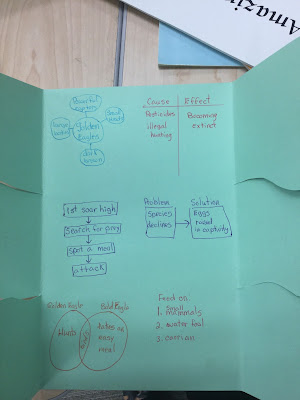 Amazin
Powerful
Golden
Eagles
dark
brown
Cause
Effect
Pesticides
illegal
hunting
Becoming
extinct
1st soar high
Search for prey
Spot a meal
attack
Problem
Solution
Species
declines
Eggs
raised
in captivity
Golden Eagle
Bald Eagle
Hunts
takes an
easy
meal
Feed on
1. small
mammals
2. water foul
3. carrion